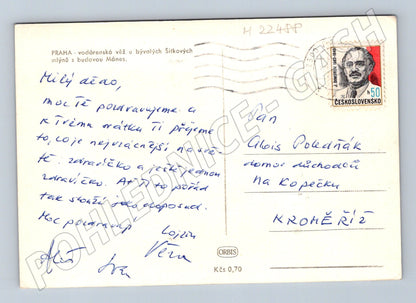 M 22488
PRAHA - vodárenská věž u bývalých Šítkových
mlýnů s budovou Mánes.
Milý dědo,
moc Tě pozdravujeme a
k Tvému svátku Ti přejeme
to, co je nejvzácnější na svě-
tě. zdravíčko a ještě jednou
zdravíčko. Ať Ti to pořád
tak slouží jako doposud.
Moc pozdravují
Lojzin
Věra
Iva
50
ČESKOSLOVENSKO
Pán
Alois Poledňák
domov důchodců
Na Kopečku
KROMĚŘÍŽ
ORBIS
Kčs 0,70
POHLEDNICE-CECH